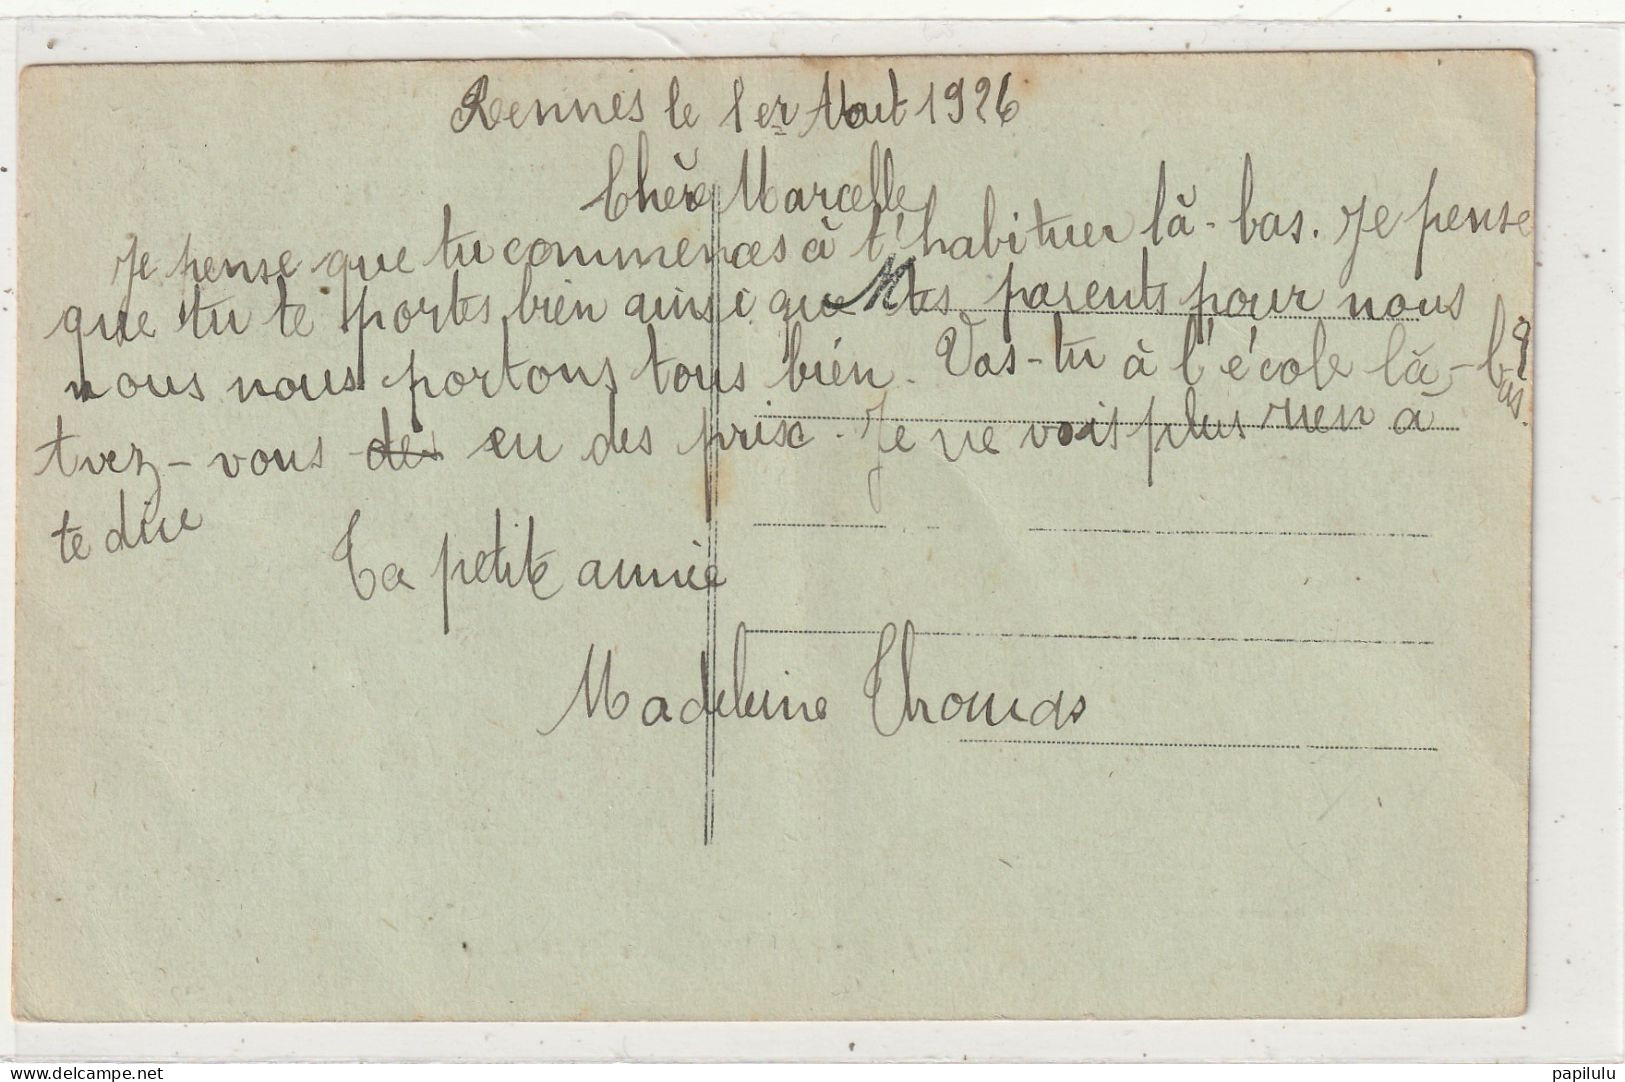 Rennes le 1er Aout 1926
Chère Marcelle
Je pense que tu commences à t'habituer là-bas. Je pense
que tu te portes bien ainsi que tes parents pour nous
nous nous portons tous bien. Vas-tu à l'école là-bas ?
Avez-vous des eu des prix. Je ne vois plus rien à
te dire
Ta petite amie
Madeleine Thomas
delcampe.net
papilulu